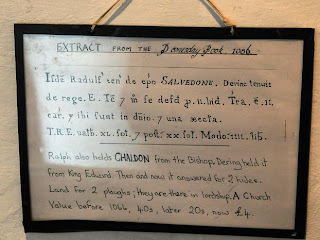 EXTRACT FROM THE Domesday Book. 1086.
Isdē Radulf' ten' de ep̄o SALVEDONE. Derinc tenuit
de rege. E. Tc̄ 7 m̊ se defd' p. ii. hid. Tr̄a. ē. ii.
car. 7 ibi sunt in dn̄io. 7 una æccta.
T.R.E. ualb. xl. sol. 7 post. xx. sol. Modo. iiii. lib.
Ralph also holds CHALDON from the Bishop. Dering held it
from King Edward. Then and now it answered for 2 hides.
Land for 2 ploughs; they are there in lordship. A Church
Value before 1066, 40s, later 20s, now £4.